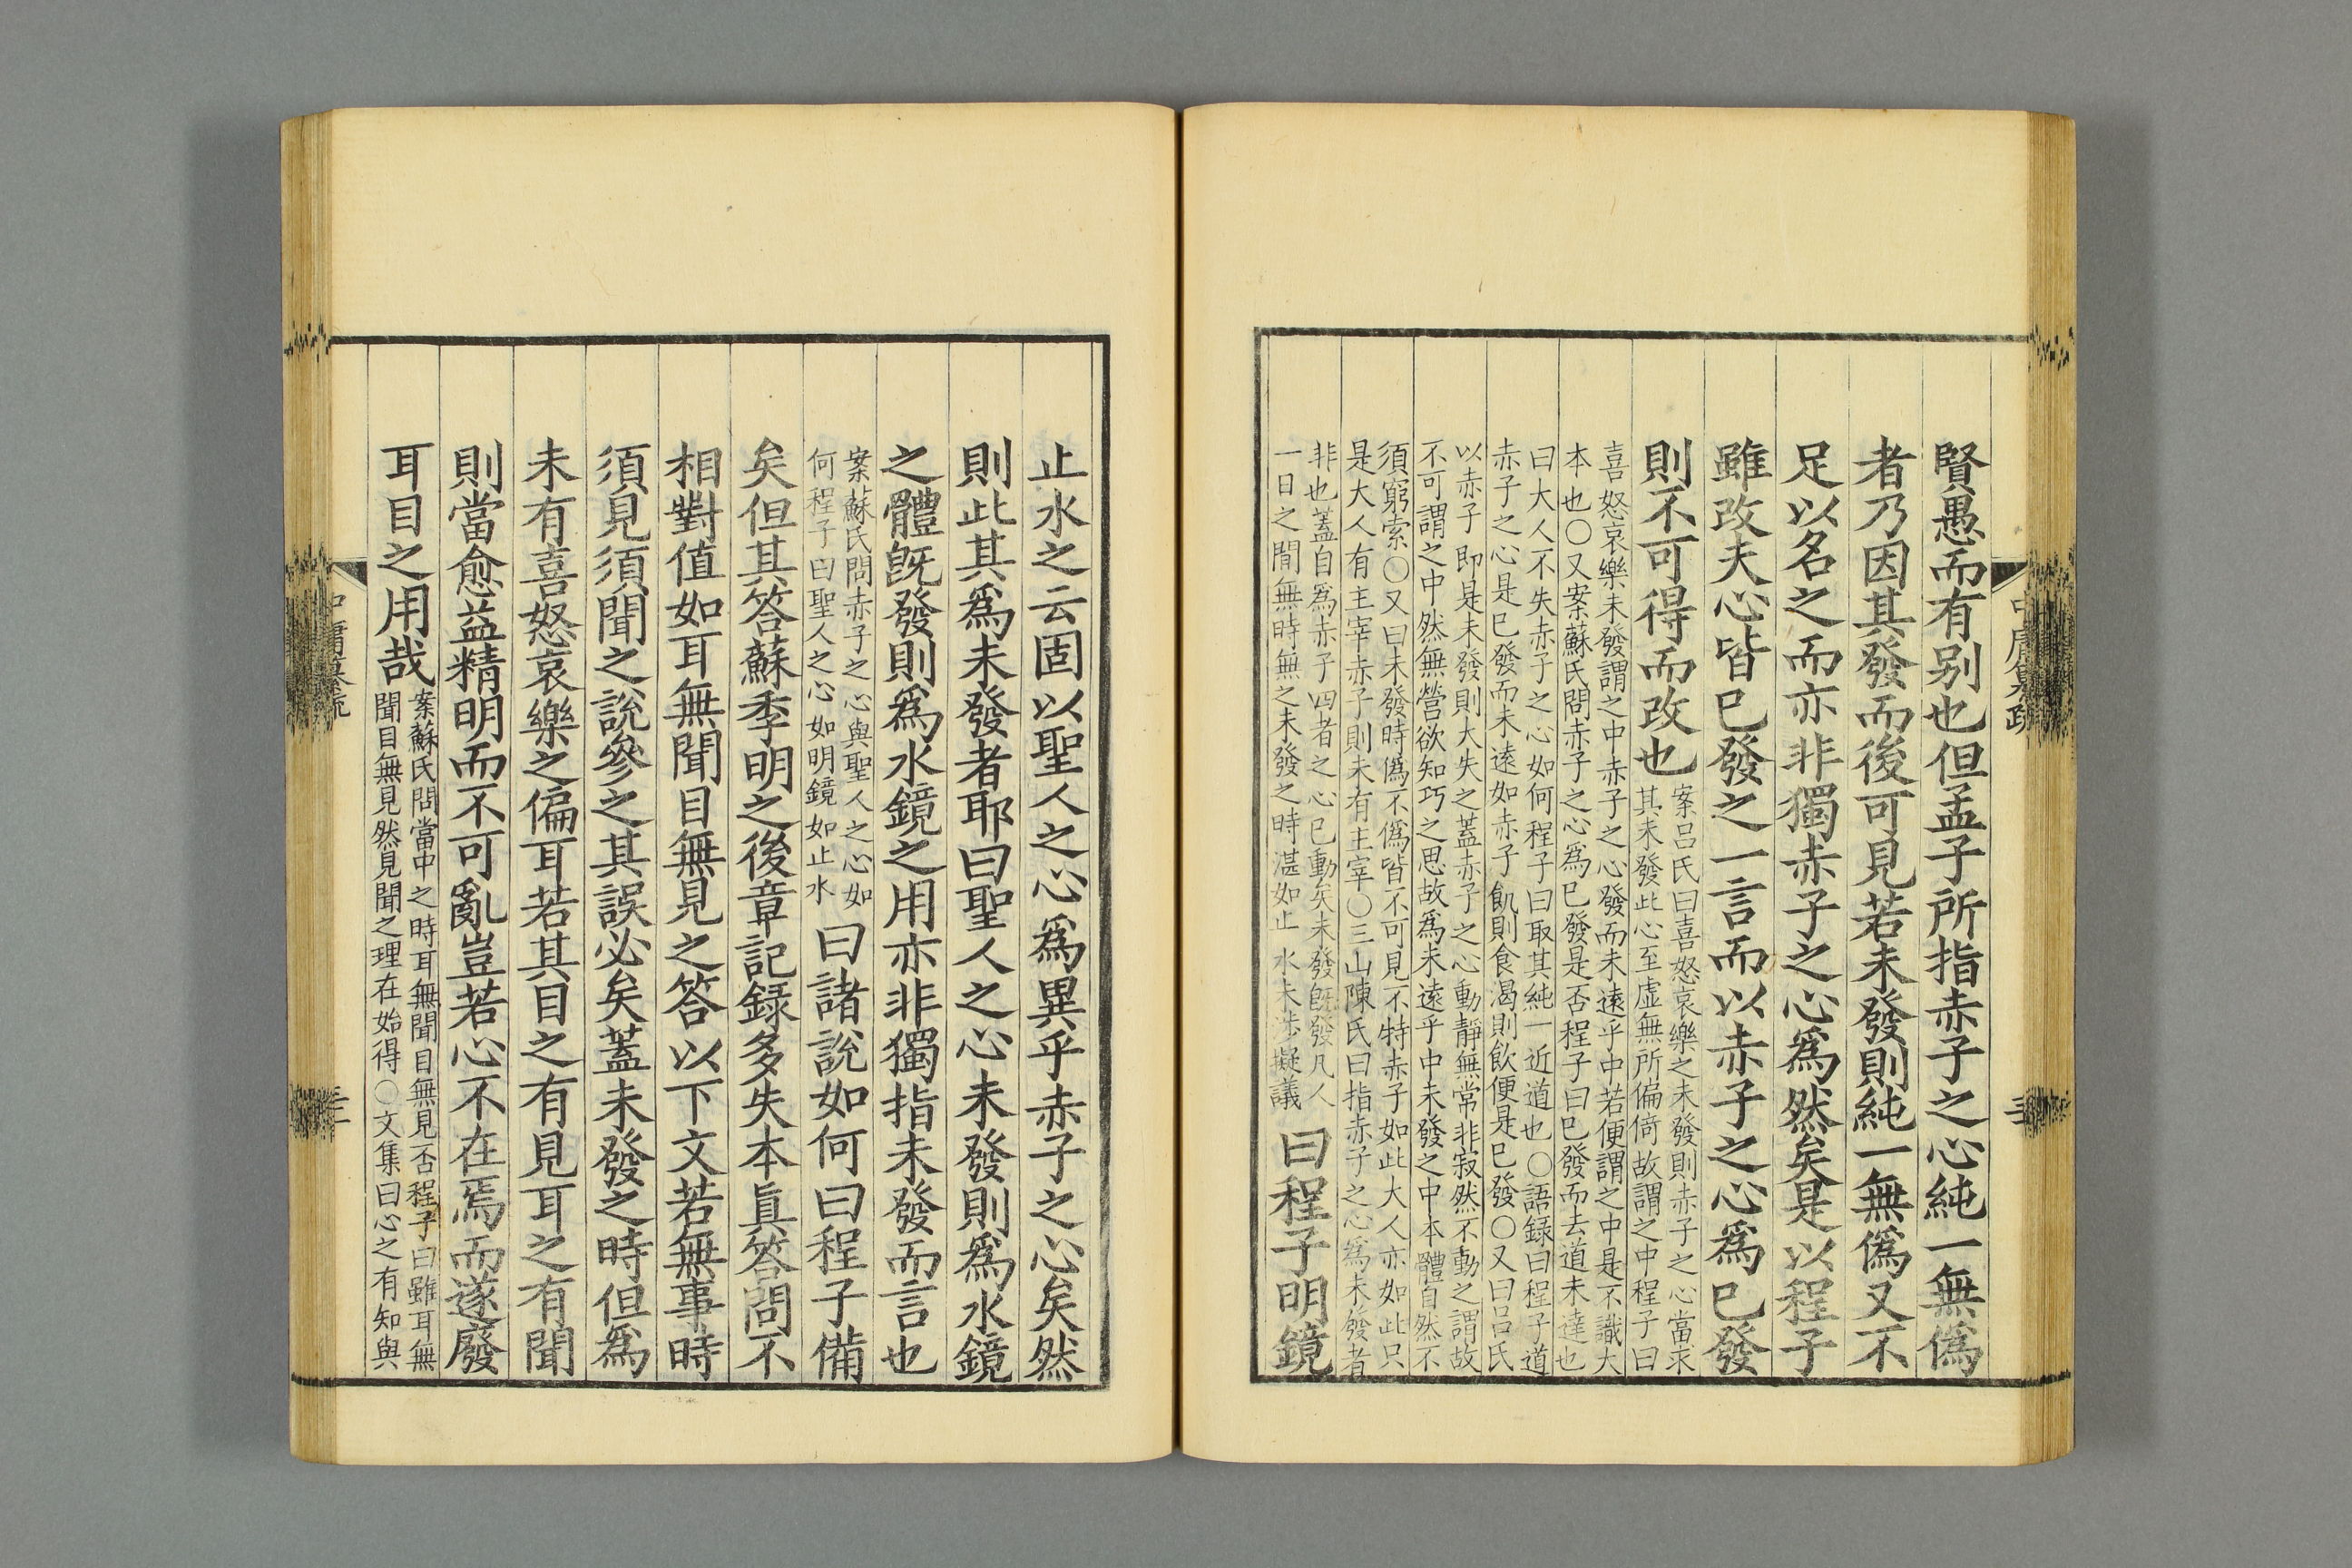 中庸纂疏
賢愚而有别也但孟子所指赤子之心純一無僞
者乃因其發而後可見若未發則純一無僞又不
足以名之而亦非獨赤子之心爲然矣是以程子
雖改夫心皆已發之一言而以赤子之心爲已發
則不可得而改也
案呂氏曰喜怒哀樂之未發則赤子之心當求
其未發此心至虛無所偏倚故謂之中程子曰
喜怒哀樂未發謂之中赤子之心發而未遠乎中若便謂之中是不識大
本也○又案蘇氏問赤子之心爲已發是否程子曰已發而去道未達也
曰大人不失赤子之心如何程子曰取其純一近道也○語録曰程子道
赤子之心是已發而未遠如赤子飢則食渴則飲便是已發○又曰呂氏
以赤子即是未發則大失之蓋赤子之心動靜無常非寂然不動之謂故
不可謂之中然無營欲知巧之思故爲未遠乎中未發之中本體自然不
須窮索○又曰未發時僞不僞皆不可見不特赤子如此大人亦如此只
是大人有主宰赤子則未有主宰○三山陳氏曰指赤子之心爲未發者
非也蓋自爲赤子四者之心已動矣未發旣發凡人
一日之間無時無之未發之時湛如止水未涉擬議
曰程子明鏡
止水之云固以聖人之心爲異乎赤子之心矣然
則此其爲未發者耶曰聖人之心未發則爲水鏡
之體旣發則爲水鏡之用亦非獨指未發而言也
案蘇氏問赤子之心與聖人之心如
何程子曰聖人之心如明鏡如止水
曰諸說如何曰程子備
矣但其答蘇季明之後章記録多失本眞答問不
相對值如耳無聞目無見之答以下文若無事時
須見須聞之說參之其誤必矣蓋未發之時但爲
未有喜怒哀樂之偏耳若其目之有見耳之有聞
則當愈益精明而不可亂豈若心不在焉而遂廢
耳目之用哉
案蘇氏問當中之時耳無聞目無見否程子曰雖耳無
聞目無見然見聞之理在始得○文集曰心之有知與
中庸纂疏